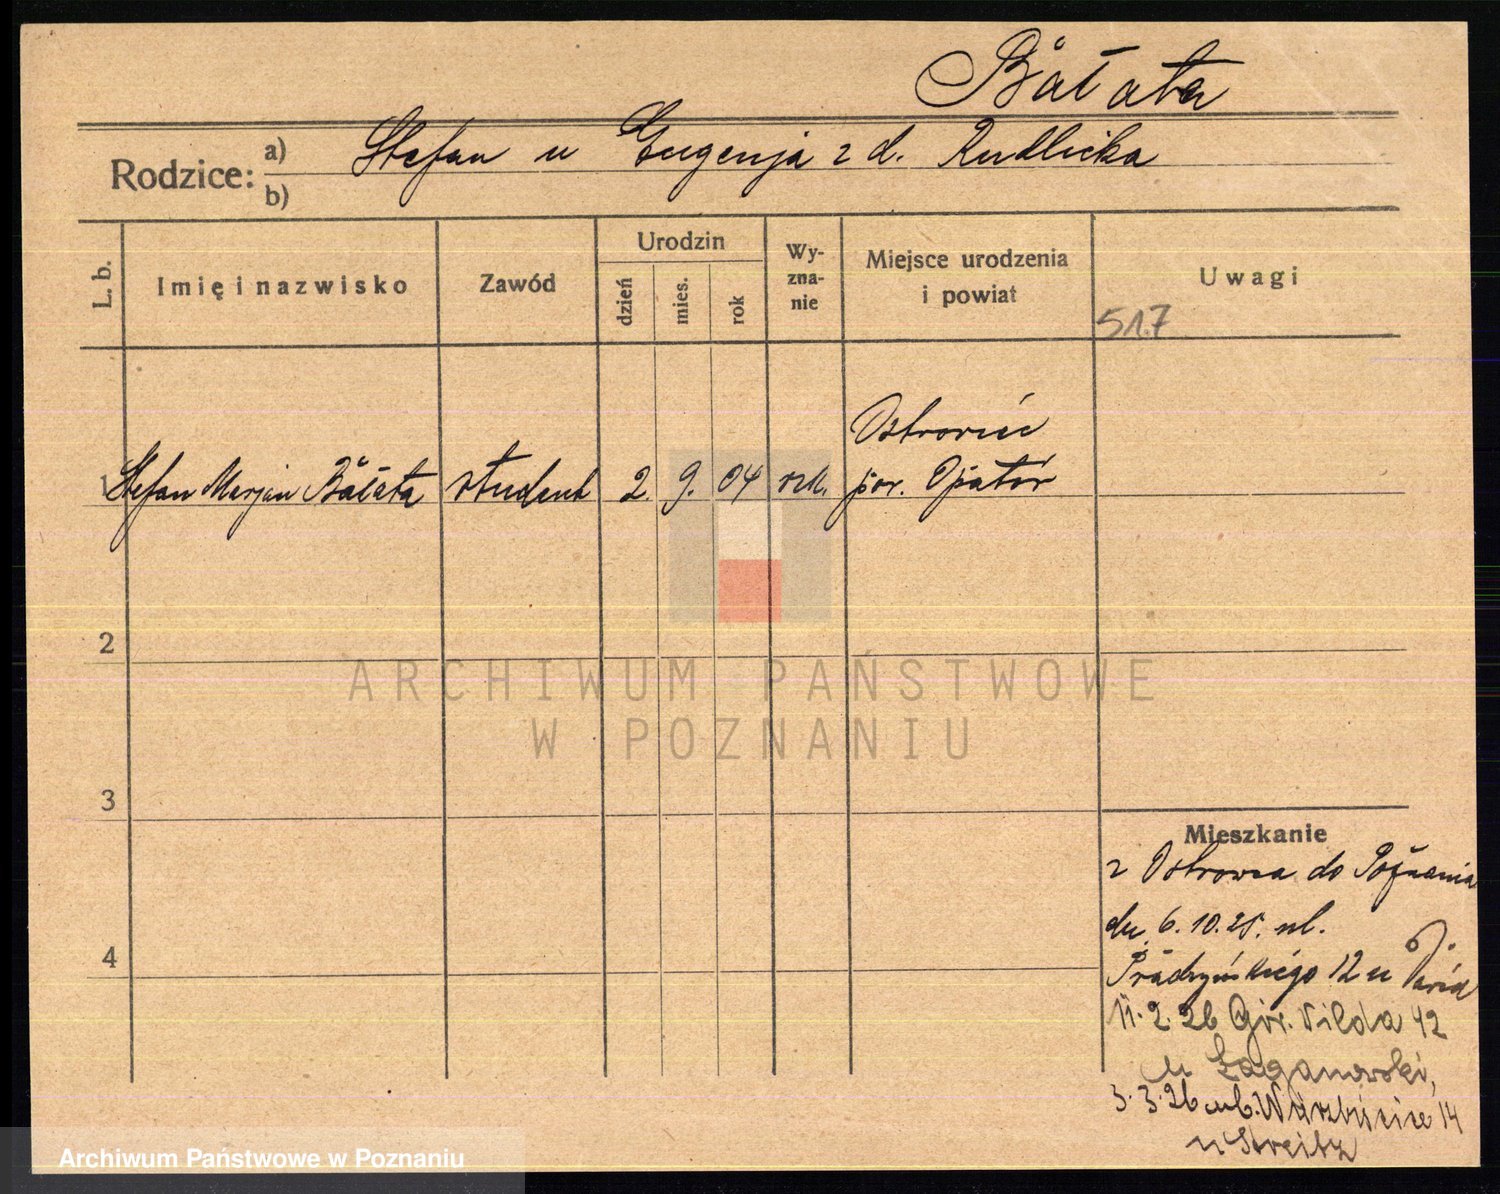 Bałata
Rodzice: a) b)
Stefan u Eugenja z d. Rudlicka
L. b.
Imię i nazwisko
Zawód
Urodzin
dzień
mies.
rok
Wy-
zna-
nie
Miejsce urodzenia
i powiat
Uwagi
51.7
Ostrowiec
1 Stefan Marjan Bałata student 2. 9. 04 rzk. pow. Opatów
2
3
4
ARCHIWUM PAŃSTWOWE
W POZNANIU
Mieszkanie
z Ostrowca do Poznania
dn. 6. 10. 25. ul.
Prądzyńskiego 12 u
11. 2. 26 Gór. Wilda 42
u Łaganowski,
3. 3. 26 ul. Wierzbięcice 14
u Streitz
Archiwum Państwowe w Poznaniu